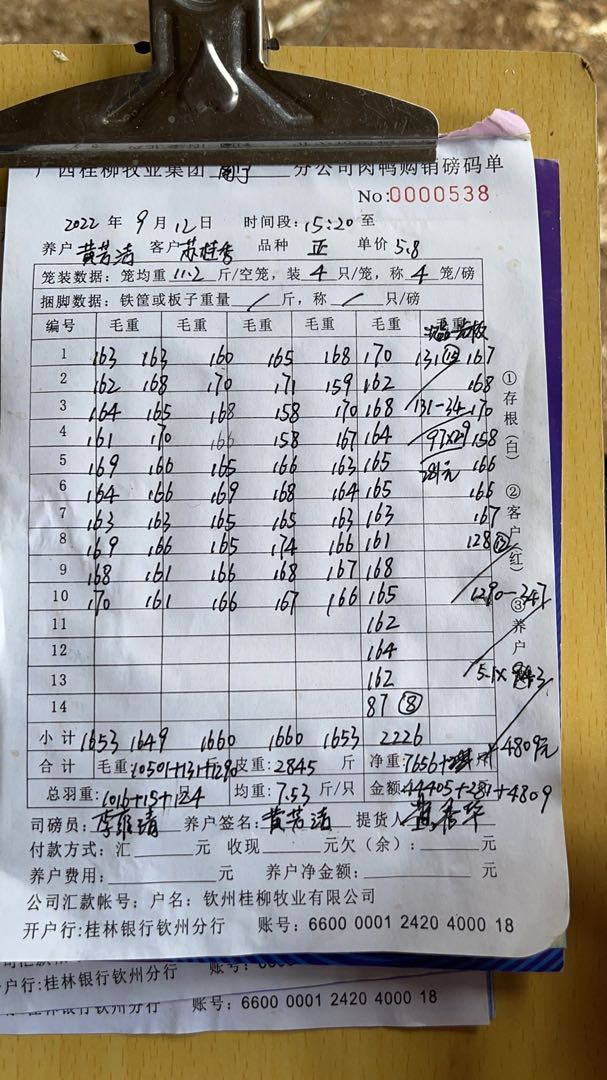 广西桂柳牧业集团 南宁 分公司肉鸭购销磅码单
No:0000538
2022 年 9 月 12 日 时间段: 15:20 至
养户 黄芳清 客户 苏桂秀 品种 正 单价 5.8
笼装数据: 笼均重 11.2 斤/空笼, 装 4 只/笼, 称 4 笼/磅
捆脚数据: 铁筐或板子重量 / 斤, 称 / 只/磅
编号 毛重 毛重 毛重 毛重 毛重 毛重 毛重
1 163 163 160 165 168 170 131 15 167
2 162 168 170 171 159 162 168
3 164 165 168 158 170 168 131-34 170
4 161 170 166 158 167 164 97×29 158
5 169 166 165 166 163 165 281元 166
6 164 166 169 168 164 165 166
7 163 163 165 165 163 163 167
8 169 166 165 174 166 161 128 12
9 168 161 166 168 167 168
10 170 161 166 167 166 165 1290-347
11 162
12 164
13 162 5.1×943
14 87 8
小计 1653 1649 1660 1660 1653 2226 4809元
合计 毛重: 10501+131+1290 皮重: 2845 斤 净重: 7656+
总羽重: 1016+15+124 均重: 7.53 斤/只 金额: 44405+281+4809
司磅员: 李雅靖 养户签名: 黄芳清 提货人
付款方式: 汇 元 收现 元欠(余): 元
养户费用: 元 养户净金额: 元
公司汇款帐号: 户名: 钦州桂柳牧业有限公司
开户行:桂林银行钦州分行 账号: 6600 0001 2420 4000 18
①存根(白) ②客户(红) ③养户
桂林银行钦州分行 账号:
户行:桂林银行钦州分行 账号: 6600 0001 2420 4000 18